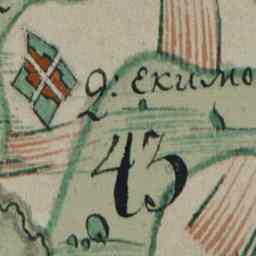 д: екимо
43